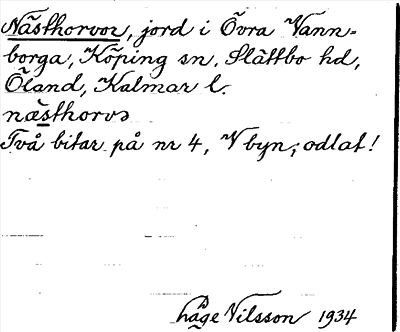 Nästhorvor, jord i Övra Vann-
borga, Köping sn, Slättbo hd,
Öland, Kalmar l.
næsthorvɔ
Två bitar på nr 4, V byn; odlat!
håge Nilsson 1934